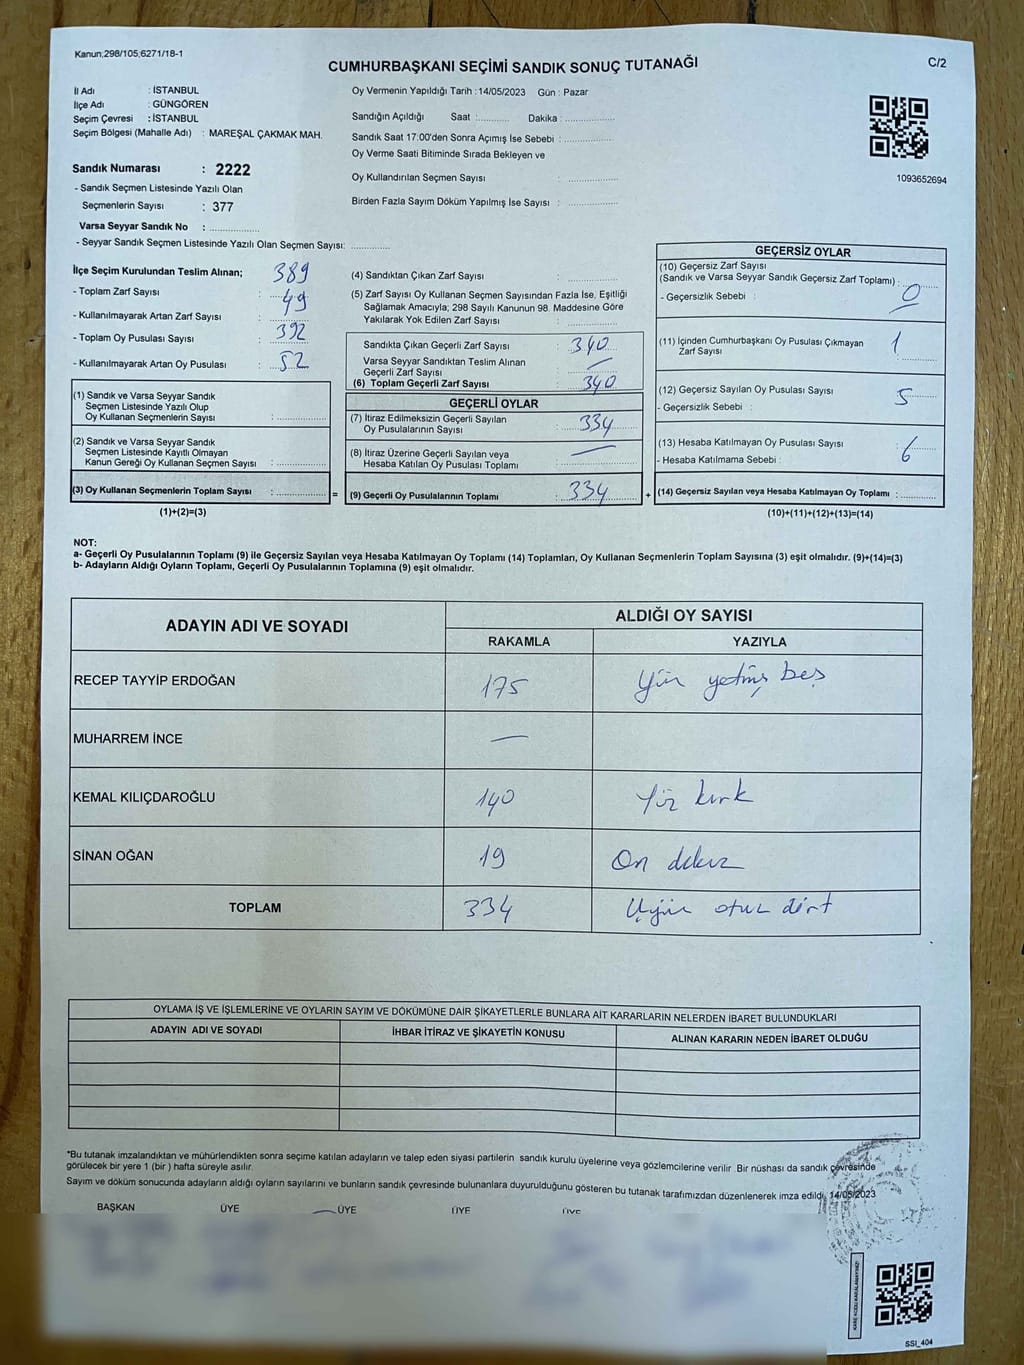 Kanun;298/105;6271/18-1
CUMHURBAŞKANI SEÇİMİ SANDIK SONUÇ TUTANAĞI
C/2
İl Adı : İSTANBUL
İlçe Adı : GÜNGÖREN
Seçim Çevresi : İSTANBUL
Seçim Bölgesi (Mahalle Adı) : MAREŞAL ÇAKMAK MAH.
Sandık Numarası : 2222
- Sandık Seçmen Listesinde Yazılı Olan
Seçmenlerin Sayısı : 377
Varsa Seyyar Sandık No : ...............
- Seyyar Sandık Seçmen Listesinde Yazılı Olan Seçmen Sayısı: ............
Oy Vermenin Yapıldığı Tarih : 14/05/2023 Gün : Pazar
Sandığın Açıldığı Saat :.......... Dakika : ...............
Sandık Saat 17:00'den Sonra Açımış İse Sebebi : ...............
Oy Verme Saati Bitiminde Sırada Bekleyen ve
Oy Kullandırılan Seçmen Sayısı : ...............
Birden Fazla Sayım Döküm Yapılmış İse Sayısı : ...............
1093652694
İlçe Seçim Kurulundan Teslim Alınan; 389
- Toplam Zarf Sayısı : 49
- Kullanılmayarak Artan Zarf Sayısı :
- Toplam Oy Pusulası Sayısı : 392
- Kullanılmayarak Artan Oy Pusulası : 52
(1) Sandık ve Varsa Seyyar Sandık
Seçmen Listesinde Yazılı Olup
Oy Kullanan Seçmenlerin Sayısı : ...............
(2) Sandık ve Varsa Seyyar Sandık
Seçmen Listesinde Kayıtlı Olmayan
Kanun Gereği Oy Kullanan Seçmen Sayısı : ...............
(3) Oy Kullanan Seçmenlerin Toplam Sayısı : ...............
(1)+(2)=(3)
=
(4) Sandıktan Çıkan Zarf Sayısı : ...............
(5) Zarf Sayısı Oy Kullanan Seçmen Sayısından Fazla İse, Eşitliği
Sağlamak Amacıyla; 298 Sayılı Kanunun 98. Maddesine Göre
Yakılarak Yok Edilen Zarf Sayısı : ...............
Sandıkta Çıkan Geçerli Zarf Sayısı : 340
Varsa Seyyar Sandıktan Teslim Alınan
Geçerli Zarf Sayısı : —
(6) Toplam Geçerli Zarf Sayısı : 340
GEÇERLİ OYLAR
(7) İtiraz Edilmeksizin Geçerli Sayılan
Oy Pusulalarının Sayısı : 334
(8) İtiraz Üzerine Geçerli Sayılan veya
Hesaba Katılan Oy Pusulası Toplamı : —
(9) Geçerli Oy Pusulalarının Toplamı : 334
+
GEÇERSİZ OYLAR
(10) Geçersiz Zarf Sayısı
(Sandık ve Varsa Seyyar Sandık Geçersiz Zarf Toplamı) :
- Geçersizlik Sebebi : 0
(11) İçinden Cumhurbaşkanı Oy Pusulası Çıkmayan
Zarf Sayısı : 1
(12) Geçersiz Sayılan Oy Pusulası Sayısı : 5
- Geçersizlik Sebebi :
(13) Hesaba Katılmayan Oy Pusulası Sayısı : 6
- Hesaba Katılmama Sebebi :
(14) Geçersiz Sayılan veya Hesaba Katılmayan Oy Toplamı : ...........
(10)+(11)+(12)+(13)=(14)
NOT:
a- Geçerli Oy Pusulalarının Toplamı (9) ile Geçersiz Sayılan veya Hesaba Katılmayan Oy Toplamı (14) Toplamları, Oy Kullanan Seçmenlerin Toplam Sayısına (3) eşit olmalıdır. (9)+(14)=(3)
b- Adayların Aldığı Oyların Toplamı, Geçerli Oy Pusulalarının Toplamına (9) eşit olmalıdır.
ADAYIN ADI VE SOYADI
ALDIĞI OY SAYISI
RAKAMLA YAZIYLA
RECEP TAYYİP ERDOĞAN 175 Yüz yetmiş beş
MUHARREM İNCE —
KEMAL KILIÇDAROĞLU 140 Yüz kırk
SİNAN OĞAN 19 On dokuz
TOPLAM 334 Üçyüz otuz dört
OYLAMA İŞ VE İŞLEMLERİNE VE OYLARIN SAYIM VE DÖKÜMÜNE DAİR ŞİKAYETLERLE BUNLARA AİT KARARLARIN NELERDEN İBARET BULUNDUKLARI
ADAYIN ADI VE SOYADI İHBAR İTİRAZ VE ŞİKAYETİN KONUSU ALINAN KARARIN NEDEN İBARET OLDUĞU
*Bu tutanak imzalandıktan ve mühürlendikten sonra seçime katılan adayların ve talep eden siyasi partilerin sandık kurulu üyelerine veya gözlemcilerine verilir Bir nüshası da sandık çevresinde
görülecek bir yere 1 (bir ) hafta süreyle asılır.
Sayım ve döküm sonucunda adayların aldığı oyların sayılarını ve bunların sandık çevresinde bulunanlara duyurulduğunu gösteren bu tutanak tarafımızdan düzenlenerek imza edildi. 14/05/2023
BAŞKAN ÜYE ÜYE ÜYE ÜYE
SSİ_404